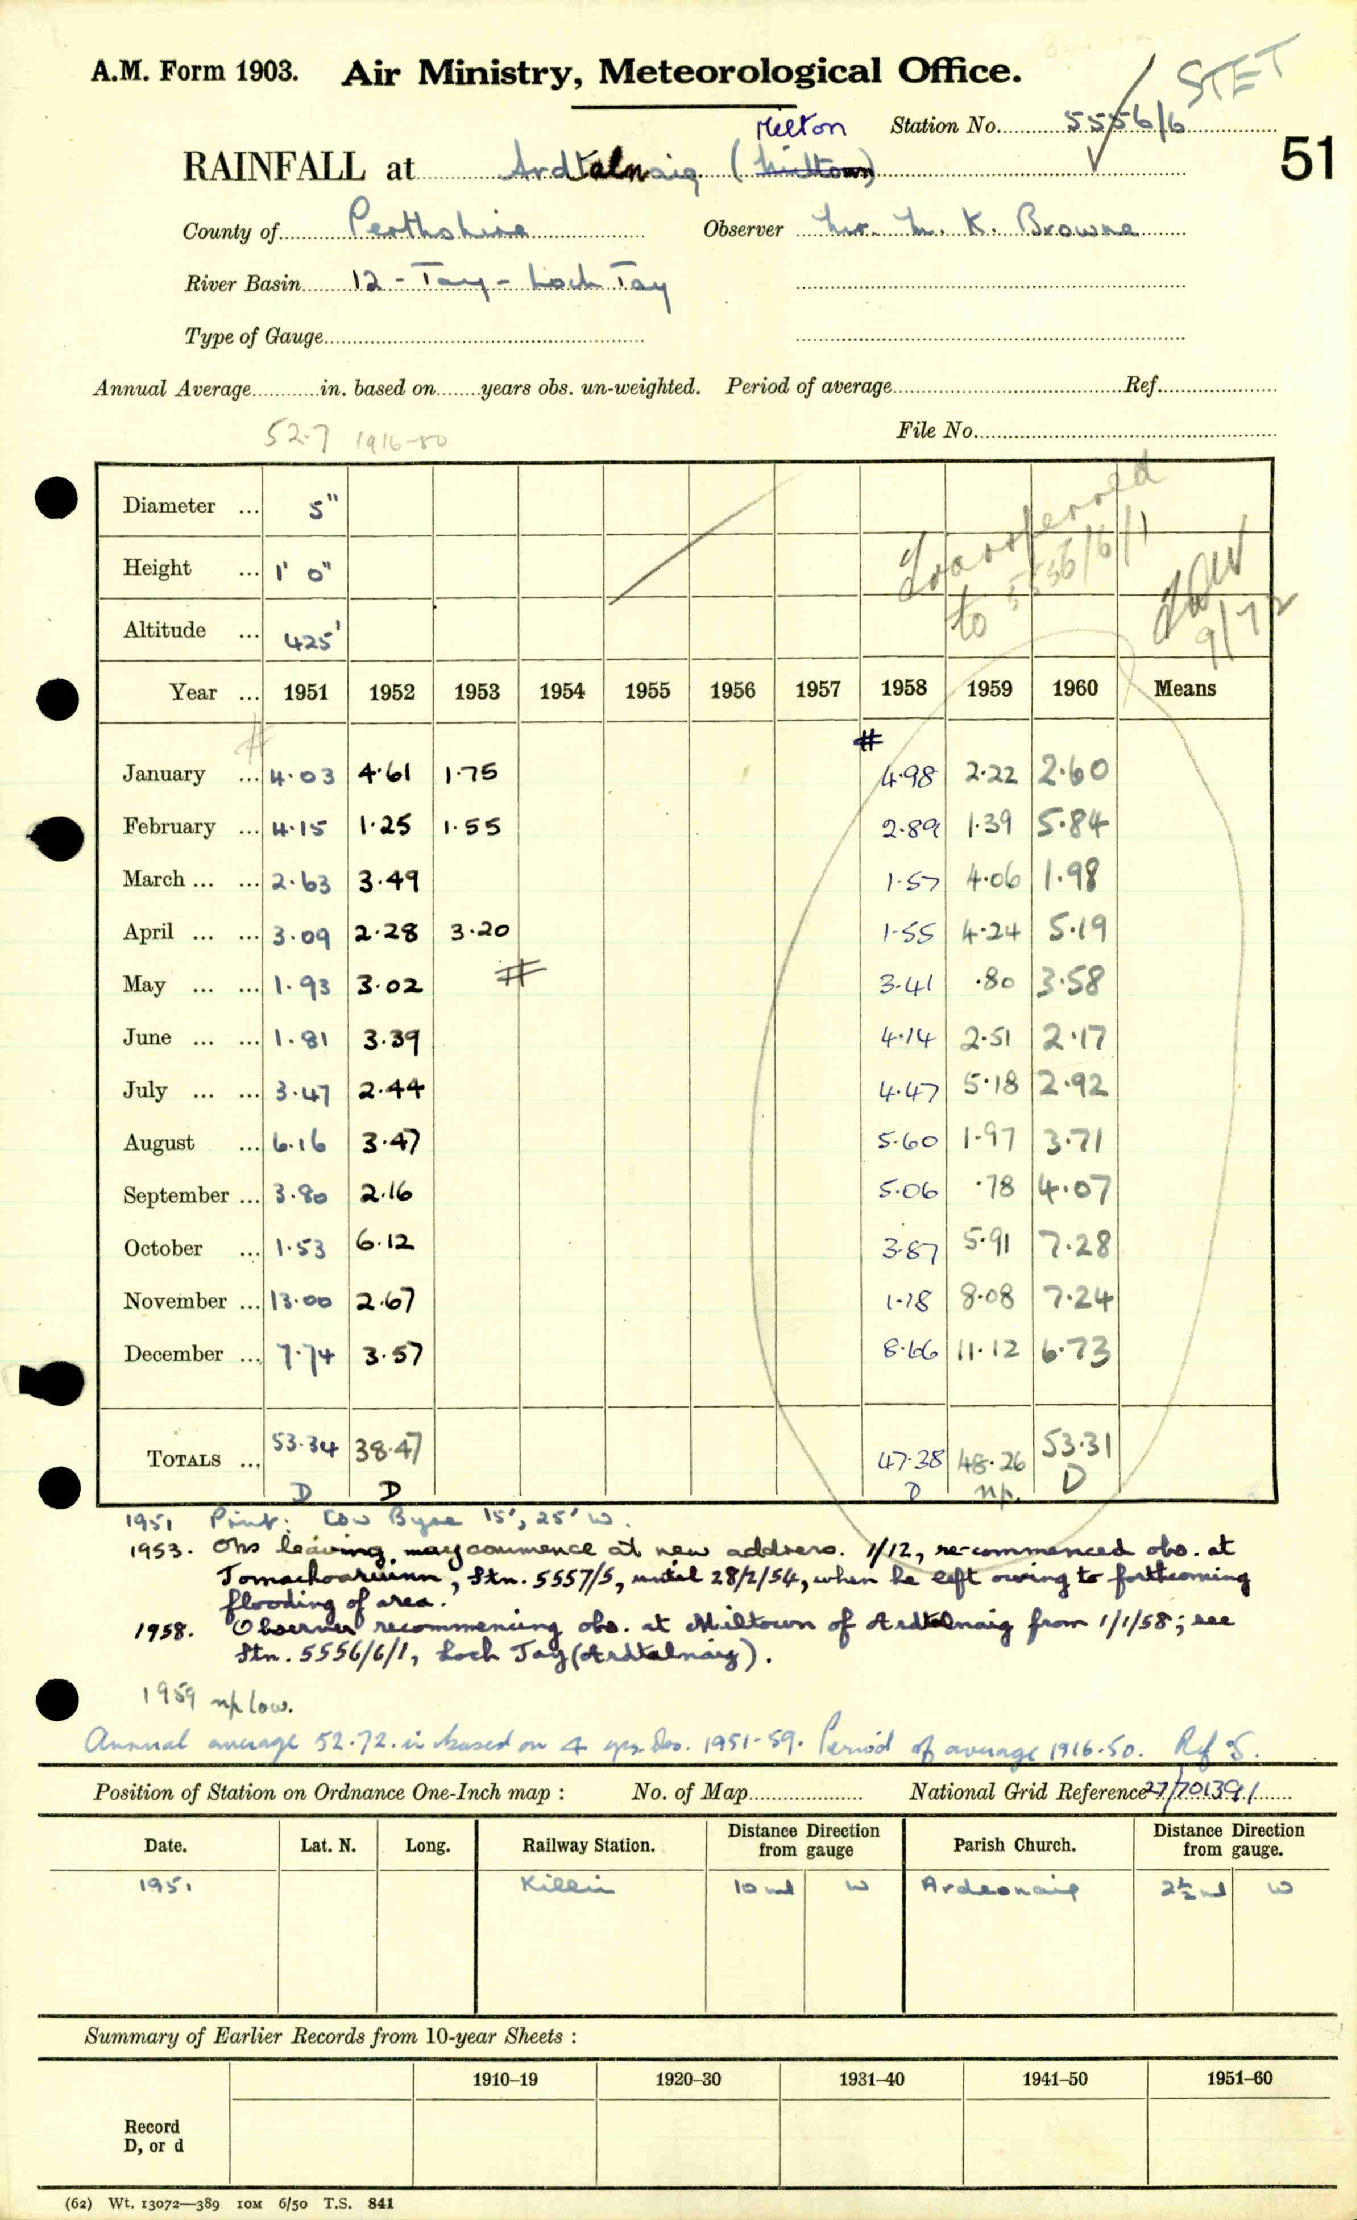 A.M. Form 1903. Air Ministry, Meteorological Office.
STET
Station No. 5556/6
51
Milton
RAINFALL at Ardtalnaig (Milltown)
County of Perthshire Observer Mr. M. K. Browne
River Basin 12 - Tay - Loch Tay
Type of Gauge
Annual Average in. based on years obs. un-weighted. Period of average Ref.
52.7 1916-50
File No.
Diameter ... 5"
Height ... 1' 0"
Altitude ... 425'
Transferred to 5556/6/1
9/72
Year ... 1951 1952 1953 1954 1955 1956 1957 1958 1959 1960 Means
# #
January ... 4.03 4.61 1.75 4.98 2.22 2.60
February ... 4.15 1.25 1.55 2.89 1.39 5.84
March ... ... 2.63 3.49 1.57 4.06 1.98
April ... ... 3.09 2.28 3.20 1.55 4.24 5.19
May ... ... 1.93 3.02 # 3.41 .80 3.58
June ... ... 1.81 3.39 4.14 2.51 2.17
July ... ... 3.47 2.44 4.47 5.18 2.92
August ... 6.16 3.47 5.60 1.97 3.71
September ... 3.80 2.16 5.06 .78 4.07
October ... 1.53 6.12 3.87 5.91 7.28
November ... 13.00 2.67 1.18 8.08 7.24
December ... 7.74 3.57 8.66 11.12 6.73
TOTALS ... 53.34 38.47 47.38 48.26 53.31
D D D np. D
1951 Print: Cow Byre 15', 25' W.
1953. Obs leaving, may commence at new address. 1/12, re-commenced obs. at
Tomachoaruinn, Stn. 5557/5, until 28/2/54, when he left owing to forthcoming
flooding of area.
1958. Observer recommencing obs. at Miltown of Ardtalnaig from 1/1/58; see
Stn. 5556/6/1, Loch Tay (Ardtalnaig).
1959 np low.
Annual average 52.72 in based on 4 yrs. Obs. 1951-59. Period of average 1916-50. Ref S.
Position of Station on Ordnance One-Inch map : No. of Map National Grid Reference 27/701391
Date. Lat. N. Long. Railway Station. Distance from Direction gauge Parish Church. Distance from Direction gauge.
1951 Killin 10 ml W Ardeonaig 2½ ml W
Summary of Earlier Records from 10-year Sheets :
1910–19 1920–30 1931–40 1941–50 1951–60
Record
D, or d
(62) Wt. 13072—389 10M 6/50 T.S. 841